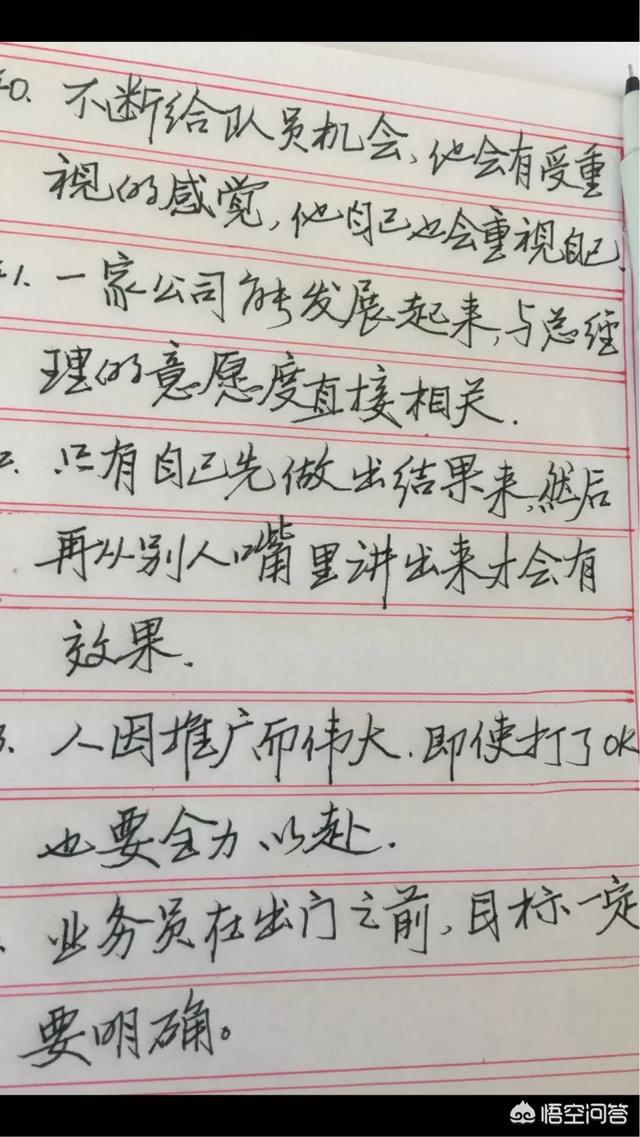 0. 不断给队员机会，他会有受重
视的感觉，他自己也会重视自己.
1. 一家公司能发展起来，与总经
理的意愿度直接相关.
只有自己先做出结果来，然后
再从别人嘴里讲出来才会有
效果.
人因推广而伟大.即使打了OK
也要全力以赴.
业务员在出门之前，目标一定
要明确。
悟空问答